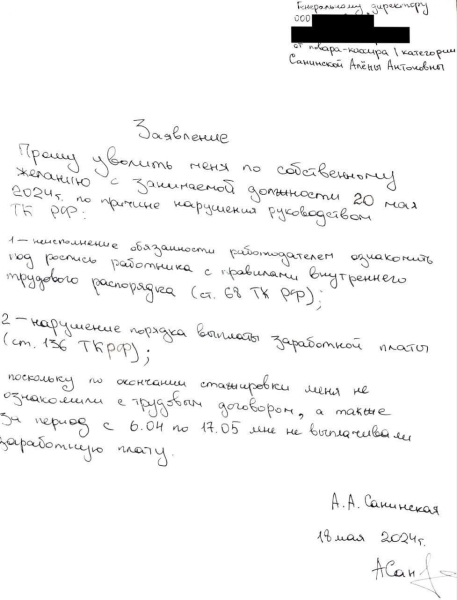 Генеральному директору
ООО
от повара-кассира 1 категории
Санинской Алёны Антоновны
Заявление
Прошу уволить меня по собственному
желанию с занимаемой должности 20 мая
2024г. по причине нарушения руководством
ТК РФ:
1 – неисполнение обязанности работодателем ознакомить
под роспись работника с правилами внутреннего
трудового распорядка (ст. 68 ТК РФ);
2 – нарушение порядка выплаты заработной платы
(ст. 136 ТК РФ);
поскольку по окончании стажировки меня не
ознакомили с трудовым договором, а также
за период с 6.04 по 17.05 мне не выплачивали
заработную плату.
А.А. Санинская
18 мая 2024г.
АСан